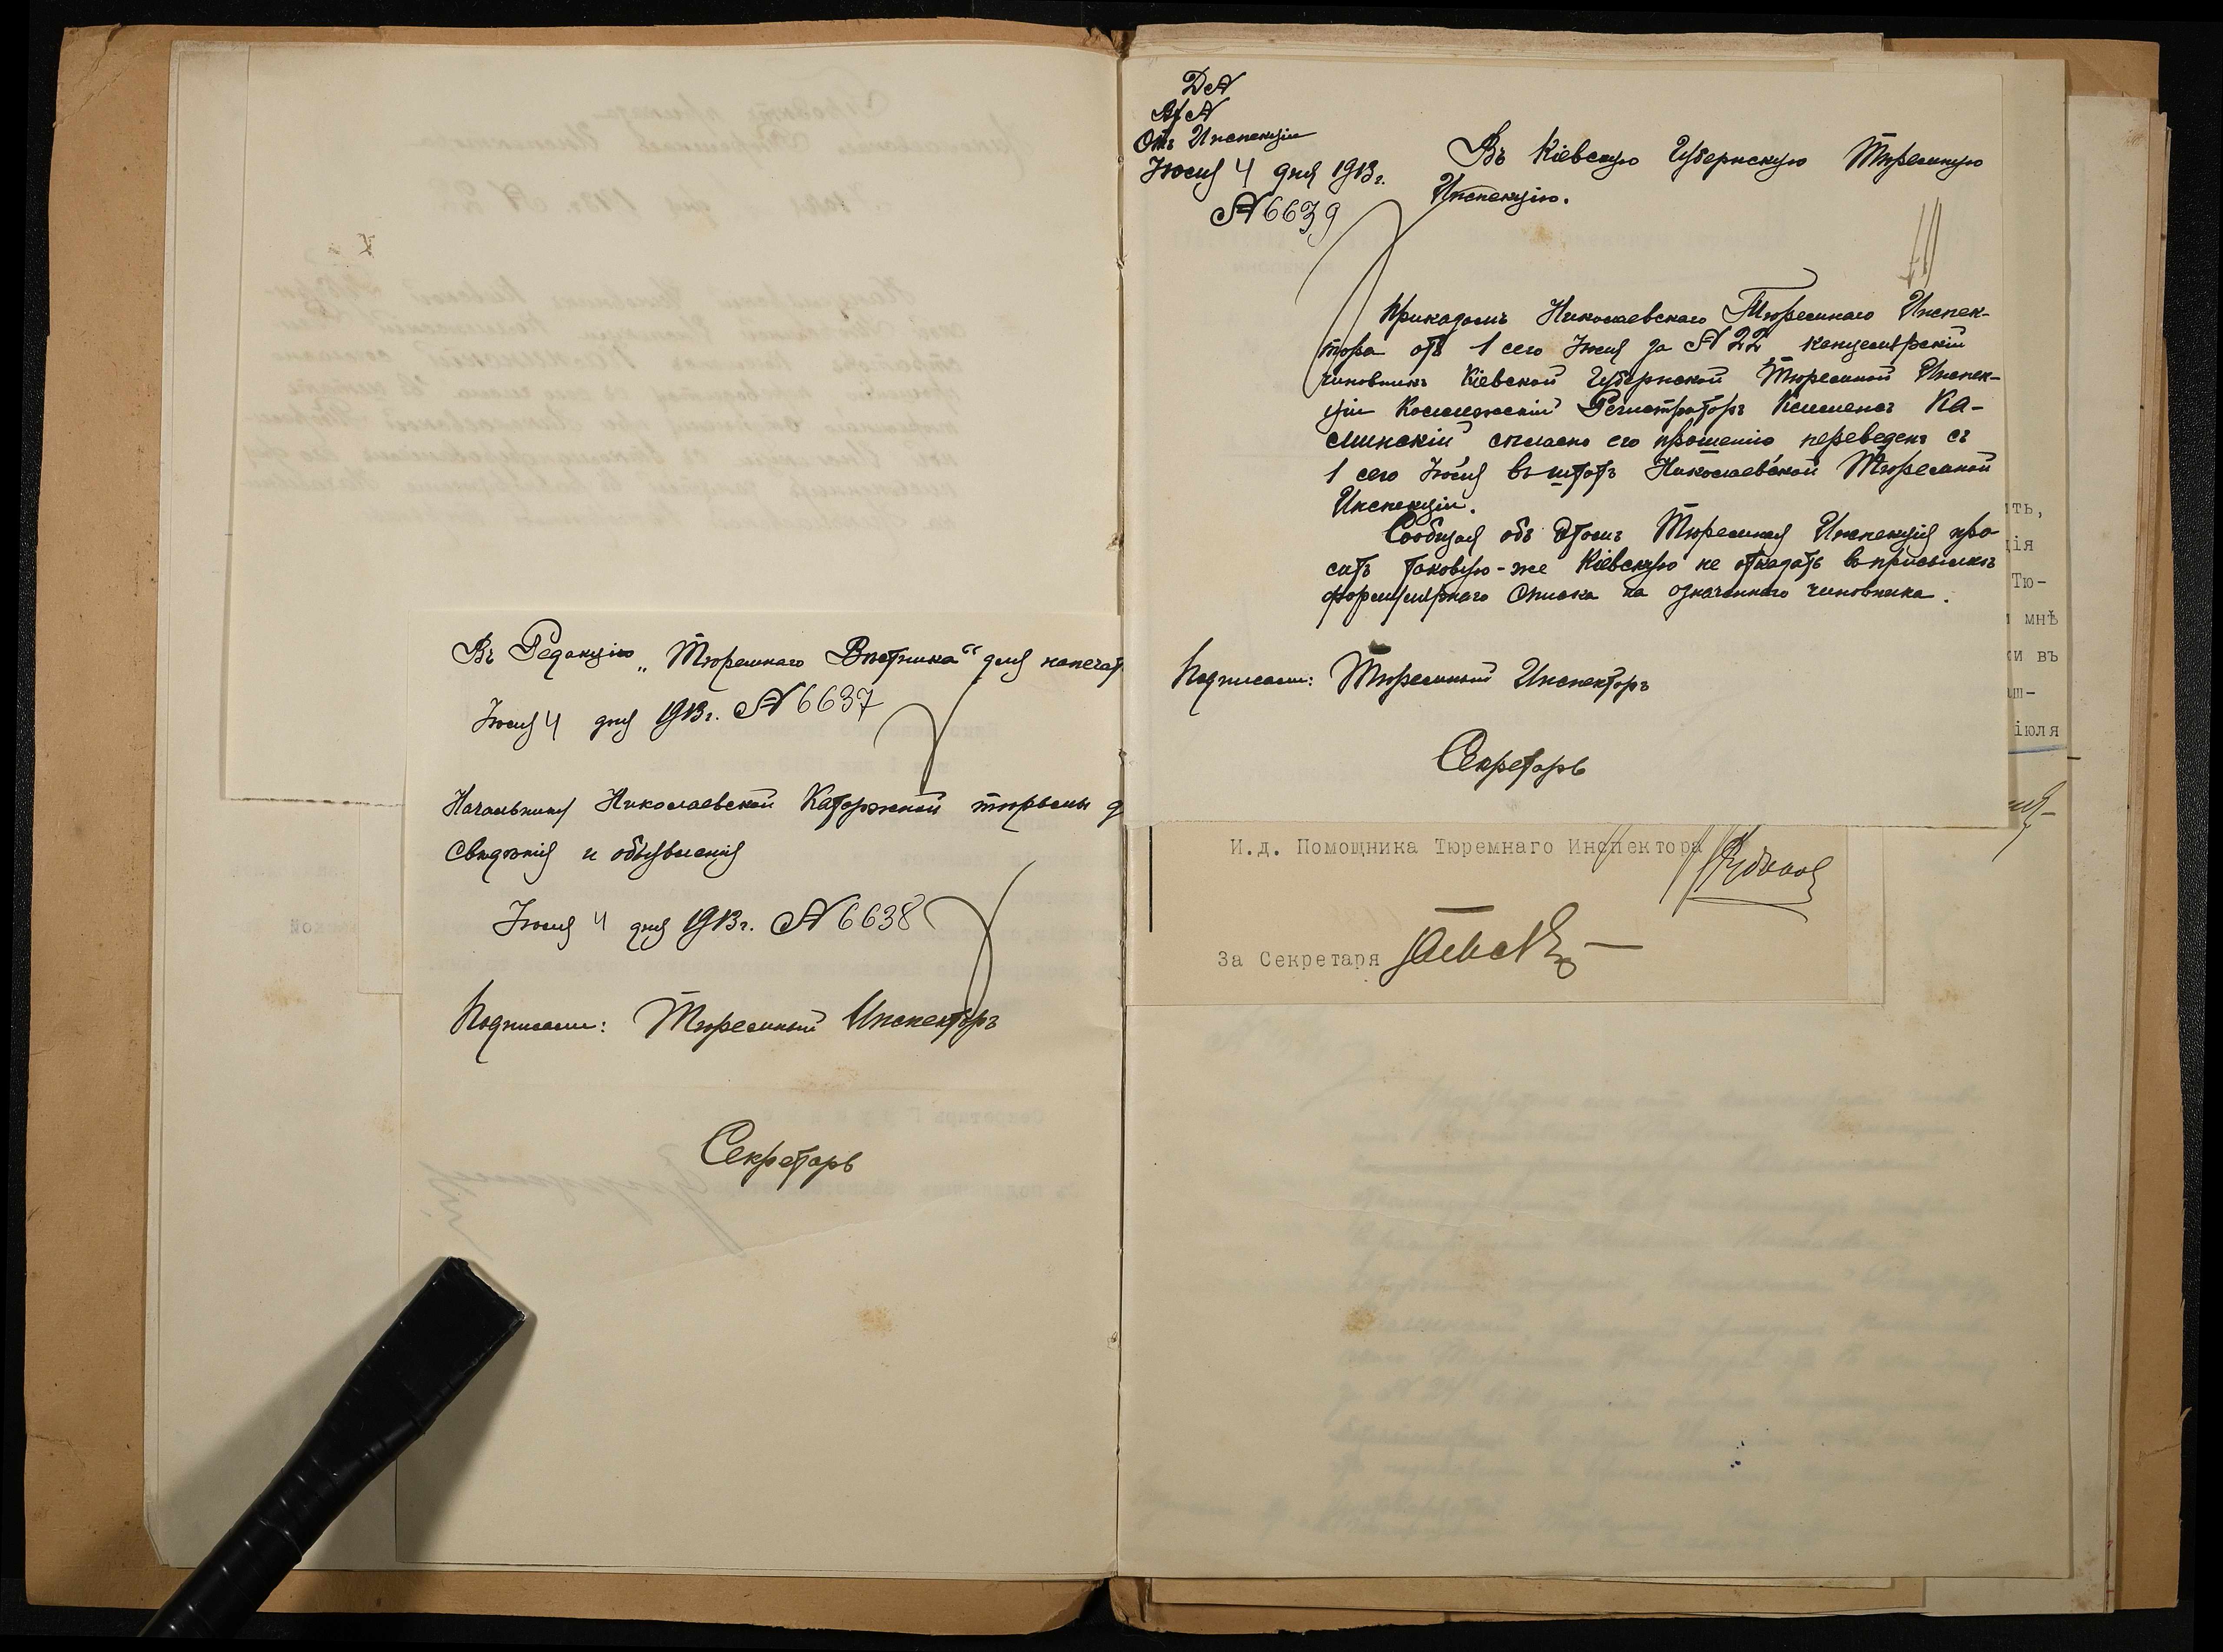 Въ Редакцію „Тюремнаго Вѣстника“ для напечат
Іюля 4 дня 1913 г. № 6637
Начальнику Николаевской Каторжной тюрьмы д
свѣдѣнія и объявленія
Іюля 4 дня 1913 г. № 6638
Подписали: Тюремный Инспекторъ
Секретарь
Д №
Вх №
Отъ Инспекціи
Іюля 4 дня 1913 г.
№ 6639
Въ Кіевскую Губернскую Тюремную
Инспекцію.
Приказомъ Николаевскаго Тюремнаго Инспек-
тора отъ 1 сего Іюля за № 22, канцелярскій
чиновникъ Кіевской Губернской Тюремной Инспек-
ціи Коллежскій Регистраторъ Климентъ Ка-
линскій согласно его прошенію переведенъ съ
1 сего Іюля въ штатъ Николаевской Тюремной
Инспекціи.
Сообщая объ этомъ Тюремная Инспекція про-
ситъ таковую-же Кіевскую не отказать въ присылкѣ
формулярнаго списка на означеннаго чиновника.
Подписали: Тюремный Инспекторъ
Секретарь
ить,
ція
Тю-
и мнѣ
ки въ
аш-
іюля
И.д. Помощника Тюремнаго Инспектора
За Секретаря